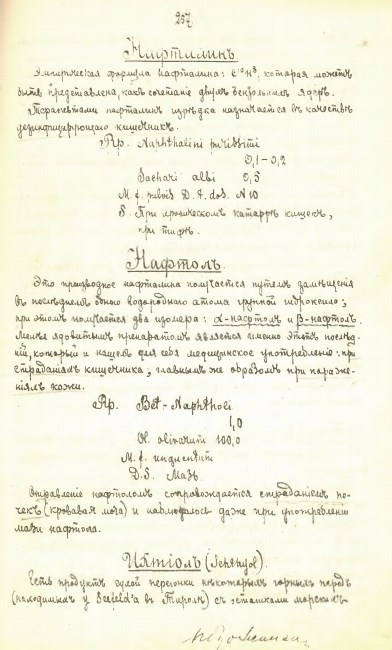 257
Нафталинъ.
Эмпирическая формула нафталина: C¹⁰H⁸, которая можетъ
быть представлена, какъ сочетаніе двухъ бензольныхъ ядеръ.
нафталинъ изрѣдка назначается въ качествѣ
дезинфицирующаго кишечникъ.
Rp. Naphthalini purissimi
0,1–0,2
Sachari albi 0,5
M. f. pulvis D. t. dos. N 10
S. При хроническомъ катаррѣ кишекъ,
при тифѣ.
Нафтолъ.
Это производное нафталина получается путемъ замѣщенія
въ послѣднемъ одного водороднаго атома группой гидроксила;
при этомъ получается два изомера: α-нафтолъ и β-нафтолъ.
Менѣе ядовитымъ препаратомъ является именно этотъ послѣд-
ній, который и нашелъ для себя медицинское употребленіе: при
страданіяхъ кишечника, главнымъ же образомъ при пораже-
ніяхъ кожи.
Rp. Bet-Naphtholi
1,0
Ol. olivarum 100,0
M. f.
D.S. Мазь
Отравленіе нафтоломъ сопровождается страданіемъ по-
чекъ (кровавая моча) и наблюдалось даже при употребленіи
мази нафтола.
Ихтіолъ (Ichthyol).
Есть продуктъ сухой перегонки нѣкоторыхъ горныхъ породъ
(находимыхъ у Seefeld'a въ Тиролѣ) съ остатками морскихъ